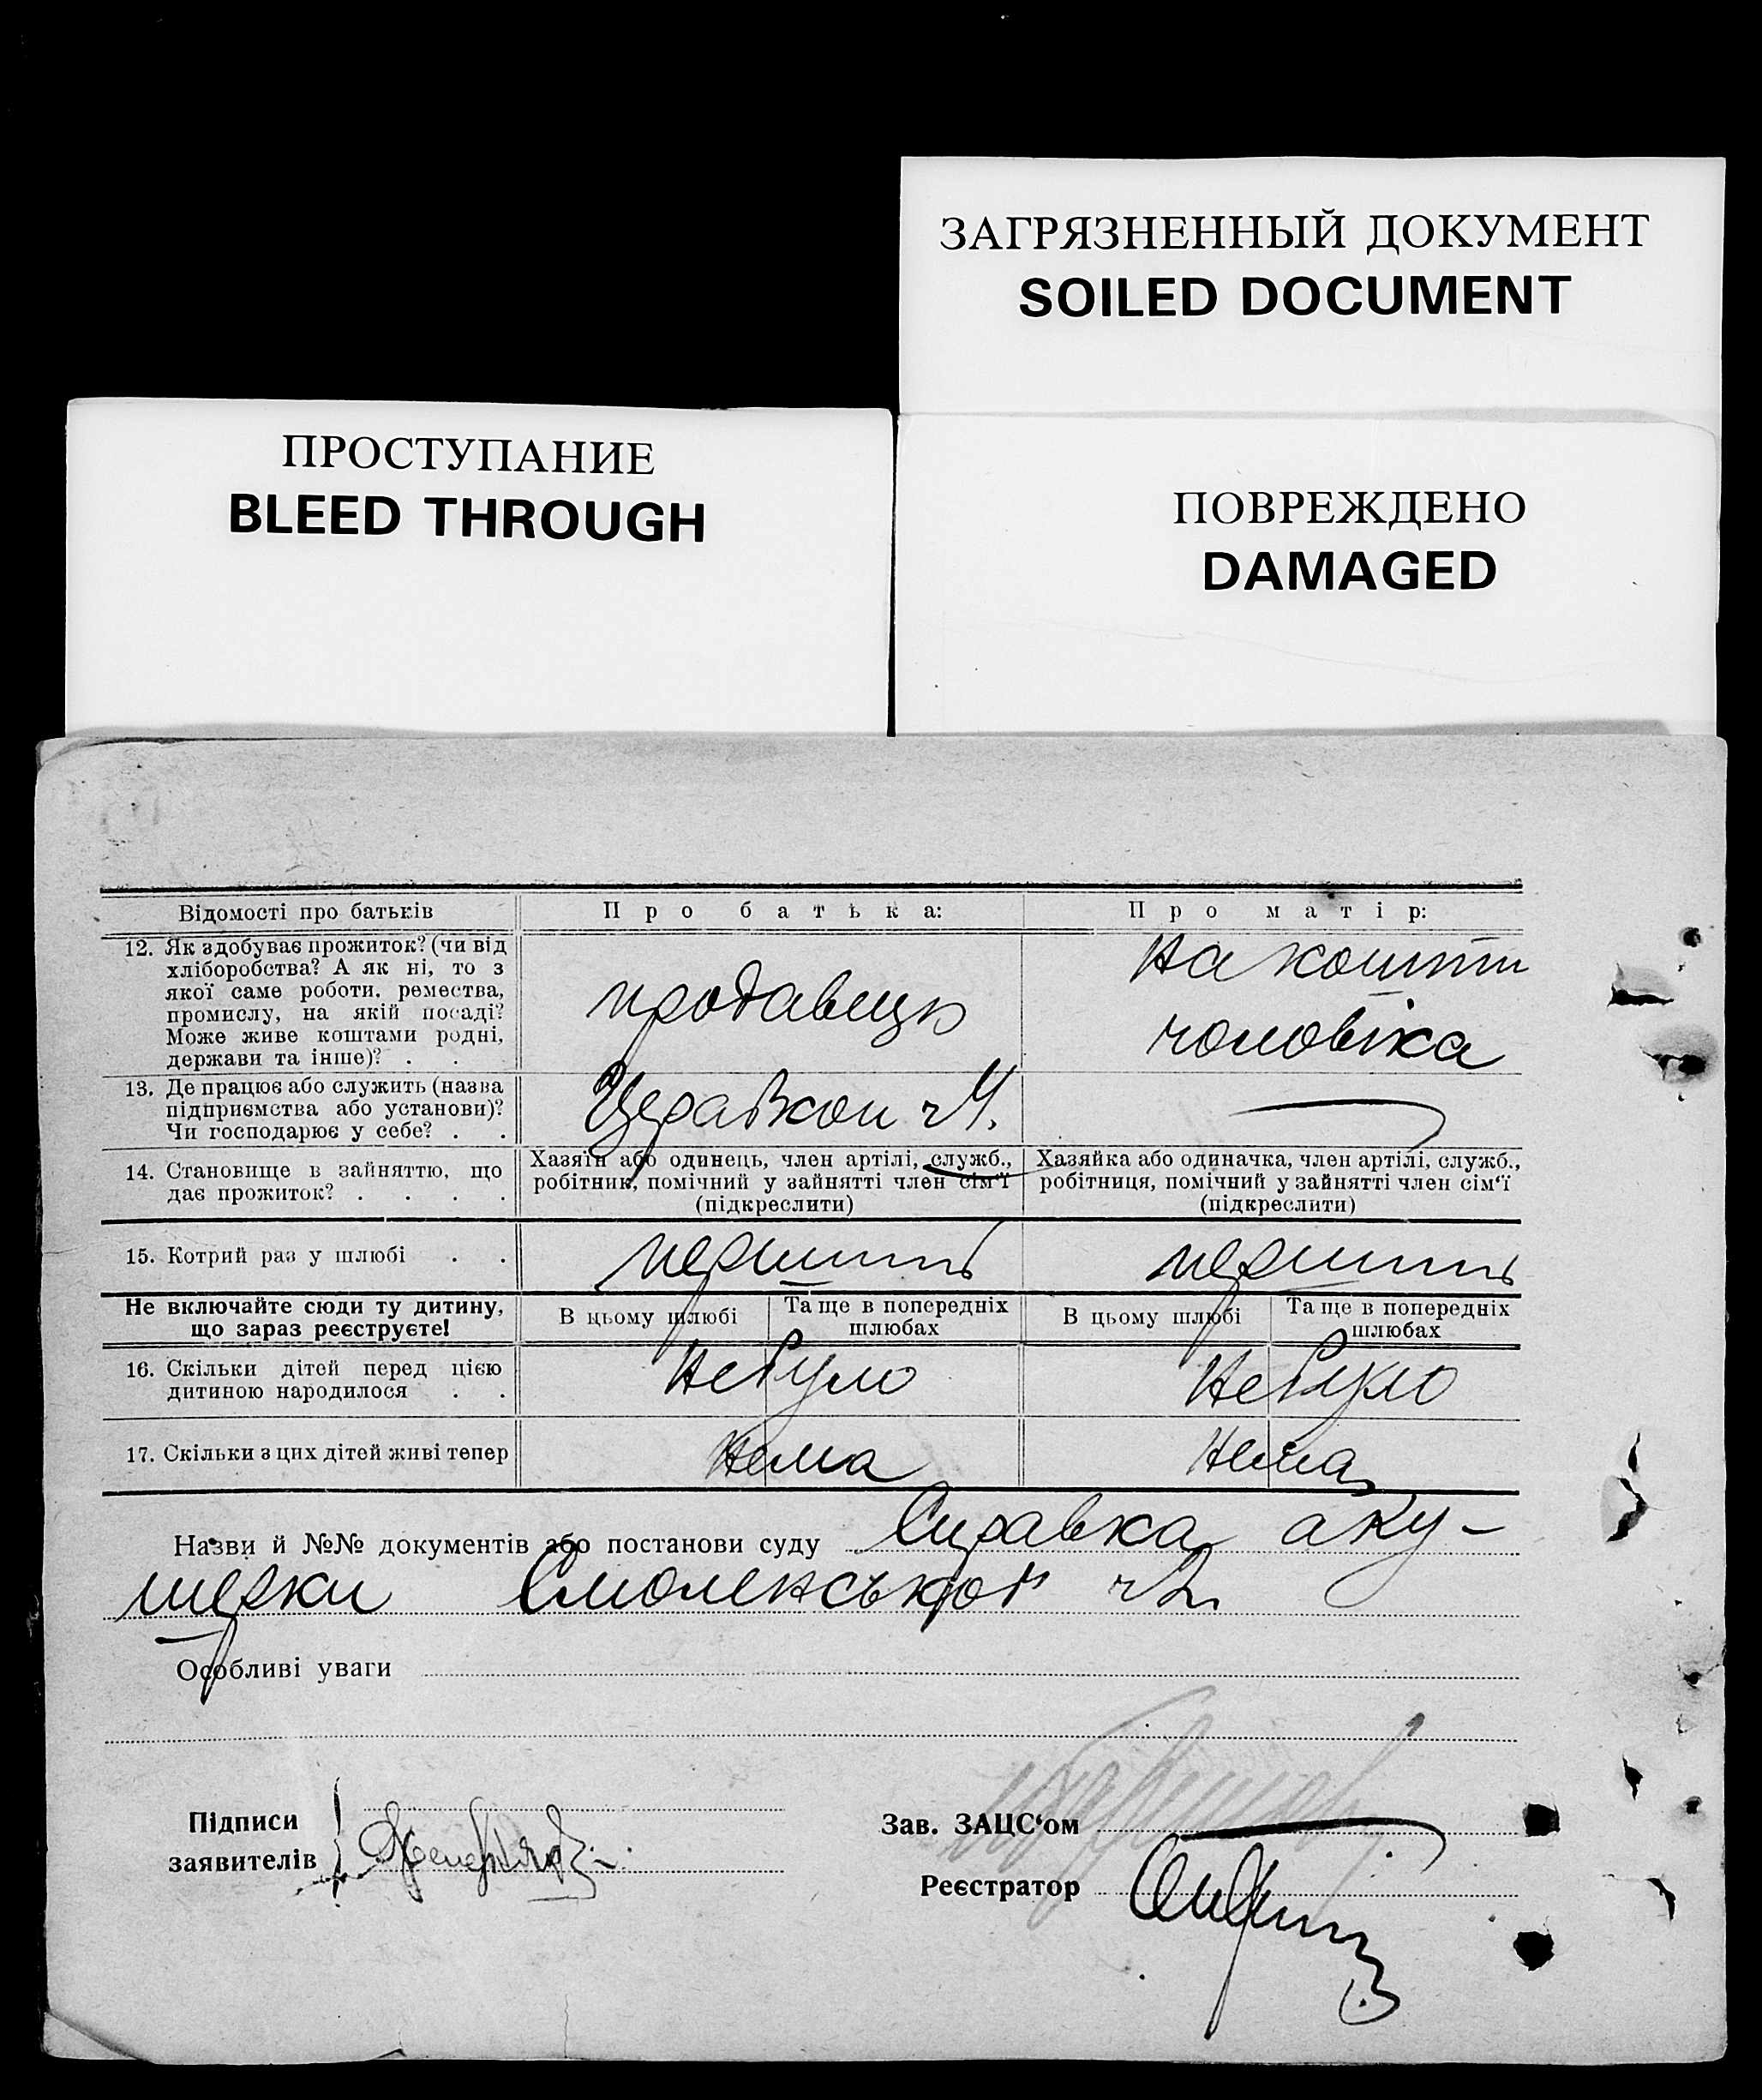 ЗАГРЯЗНЕННЫЙ ДОКУМЕНТ
SOILED DOCUMENT
ПРОСТУПАНИЕ
BLEED THROUGH
ПОВРЕЖДЕНО
DAMAGED
Відомості про батьків
Про батька:
Про матір:
12. Як здобуває прожиток? (чи від
хліборобства? А як ні, то з
якої саме роботи, ремества,
промислу, на якій посаді?
Може живе коштами родні,
держави та інше)? . .
продавець
на кошти
чоловіка
13. Де працює або служить (назва
підприємства або установи)?
Чи господарює у себе? . .
14. Становище в зайняттю, що
дає прожиток? . . . .
Хазяїн або одинець, член артілі, служб.,
робітник, помічний у зайнятті член сім'ї
(підкреслити)
Хазяйка або одиначка, член артілі, служб.,
робітниця, помічний у зайнятті член сім'ї
(підкреслити)
15. Котрий раз у шлюбі . .
перший
перший
Не включайте сюди ту дитину,
що зараз реєструєте!
В цьому шлюбі
Та ще в попередніх
шлюбах
В цьому шлюбі
Та ще в попередніх
шлюбах
16. Скільки дітей перед цією
дитиною народилося . .
Небуло
Небуло
17. Скільки з цих дітей живі тепер
Нема
Нема
Назви й №№ документів або постанови суду Справка аку-
шерки Смоленської
Особливі уваги
Підписи
заявителів
Зав. ЗАЦС'ом
Реєстратор